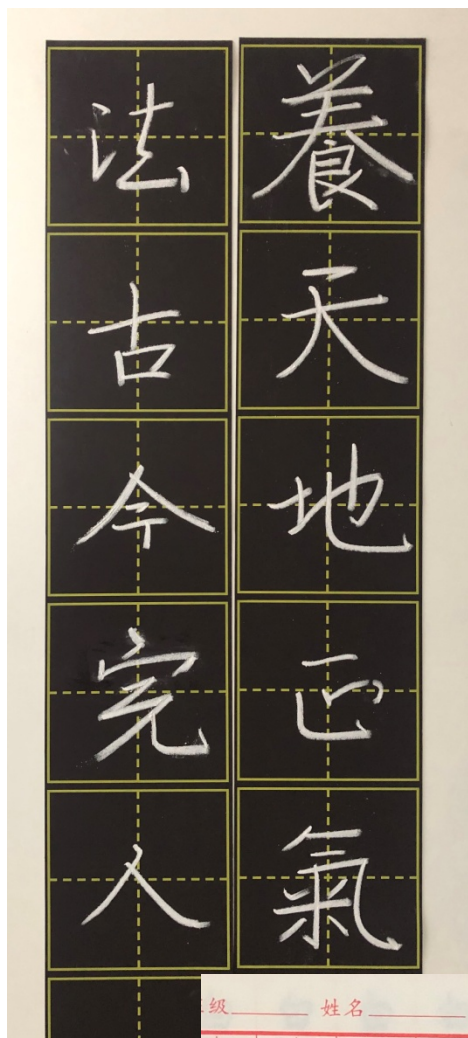 養天地正氣
法古今完人
级 姓名